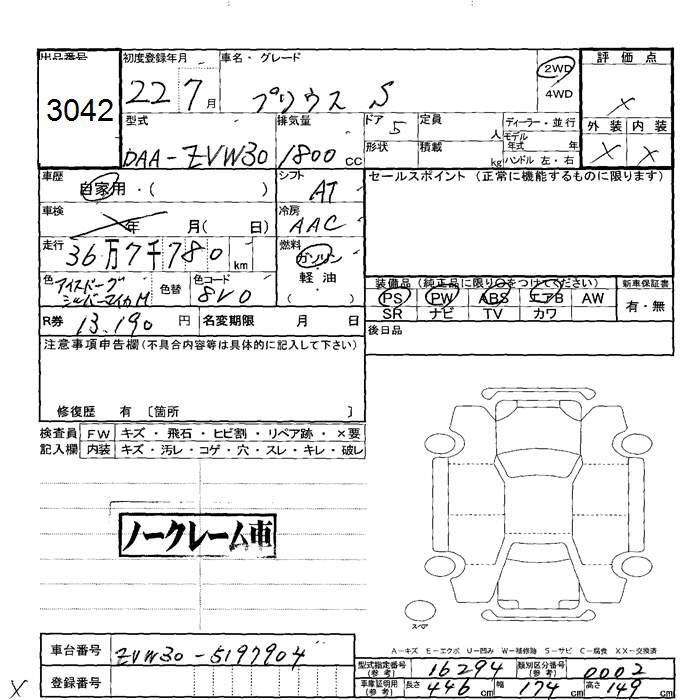 出品番号
3042
初度登録年月
22 7月
車名・グレード
プリウス S
2WD
4WD
評価点
X
外装 内装
X X
型式
DAA-ZVW30
排気量
1800 cc
ドア 5
形状
定員 人
積載 kg
ディーラー・並行
モデル年式 年
ハンドル 左・右
車歴
自家用・( )
シフト
AT
車検
年 月( 日)
冷房
AAC
走行
36万7千780 km
燃料
ガソリン
軽油
( )
色
アイスバーグシルバーマイカM
色替
色コード
8V0
R券 13,190 円
名変期限 月 日
セールスポイント(正常に機能するものに限ります)
装備品(純正品に限り○をつけてください)
PS PW ABS エアB AW
SR ナビ TV カワ
新車保証書
有・無
後日品
注意事項申告欄(不具合内容等は具体的に記入して下さい)
修復歴 有〔箇所 〕
検査員記入欄
FW キズ・飛石・ヒビ割・リペア跡・×要
内装 キズ・汚レ・コゲ・穴・スレ・キレ・破レ
ノークレーム車
スペア
A-キズ E-エクボ U-凹み W-補修跡 S-サビ C-腐食 XX-交換済
車台番号 ZVW30-5197904
登録番号
型式指定番号(参考) 16294
類別区分番号(参考) 0002
車庫証明用(参考) 長さ 446 cm 幅 174 cm 高さ 149 cm
X